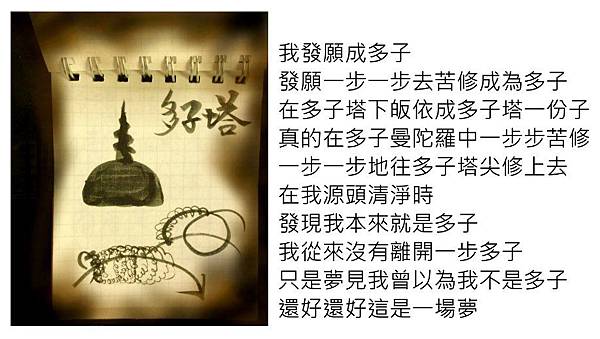 多子塔
我發願成多子
發願一步一步去苦修成為多子
在多子塔下皈依成多子塔一份子
真的在多子曼陀羅中一步步苦修
一步一步地往多子塔尖修上去
在我源頭清淨時
發現我本來就是多子
我從來沒有離開一步多子
只是夢見我曾以為我不是多子
還好還好這是一場夢